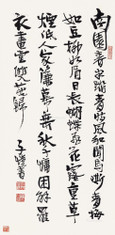 南園春半踏青時風和聞馬嘶青梅
如豆柳如眉日長蝴蝶飛花露重草
煙低人家簾幕垂秋千慵困解羅
衣畫堂雙燕歸